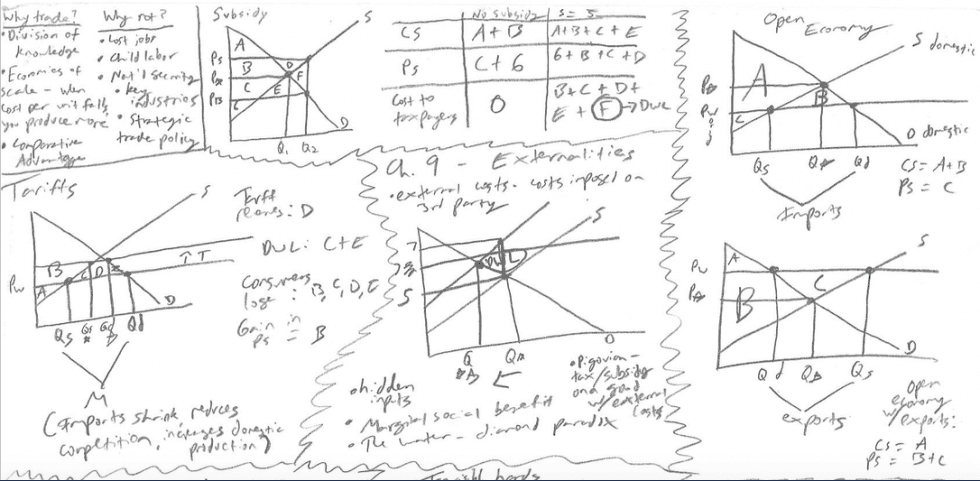 Why trade?
• Division of
knowledge
• Economies of
scale - when
cost per unit falls,
you produce more
• Comparative
Advantage
Why not?
• Lost jobs
• Child labor
• Nat'l security
• key
industries
• Strategic
trade policy
Subsidy
S
A
B
C
D
E
F
D
Q1 Q2
No subsidy
CS A+B A+B+C+E
Ps C+G
Cost to
taxpayers 0 B+C+D+
E+F → DWL
Open Economy
S domestic
A
B
C
Pw
D domestic
Qs Qd
Imports
CS = A+B
PS = C
Tariffs
S
B
A
Pw
↑T
D
Qs Qd
M
(Imports shrink, reduces
competition, increases domestic
production)
Tariff
D
DWL: C+E
Consumers
lose : B, C, D, E
Gain in
PS = B
Ch. 9 - Externalities
• external costs - costs imposed on
3rd party
S
D
• hidden
inputs
• Marginal social benefit
• The water-diamond paradox
• Pigovian -
tax/subsidy
on a good
w/ external
costs
S
Pw
A
B
C
D
Qd Qs
exports
Open
economy
w/ exports:
CS = A
PS = B+C